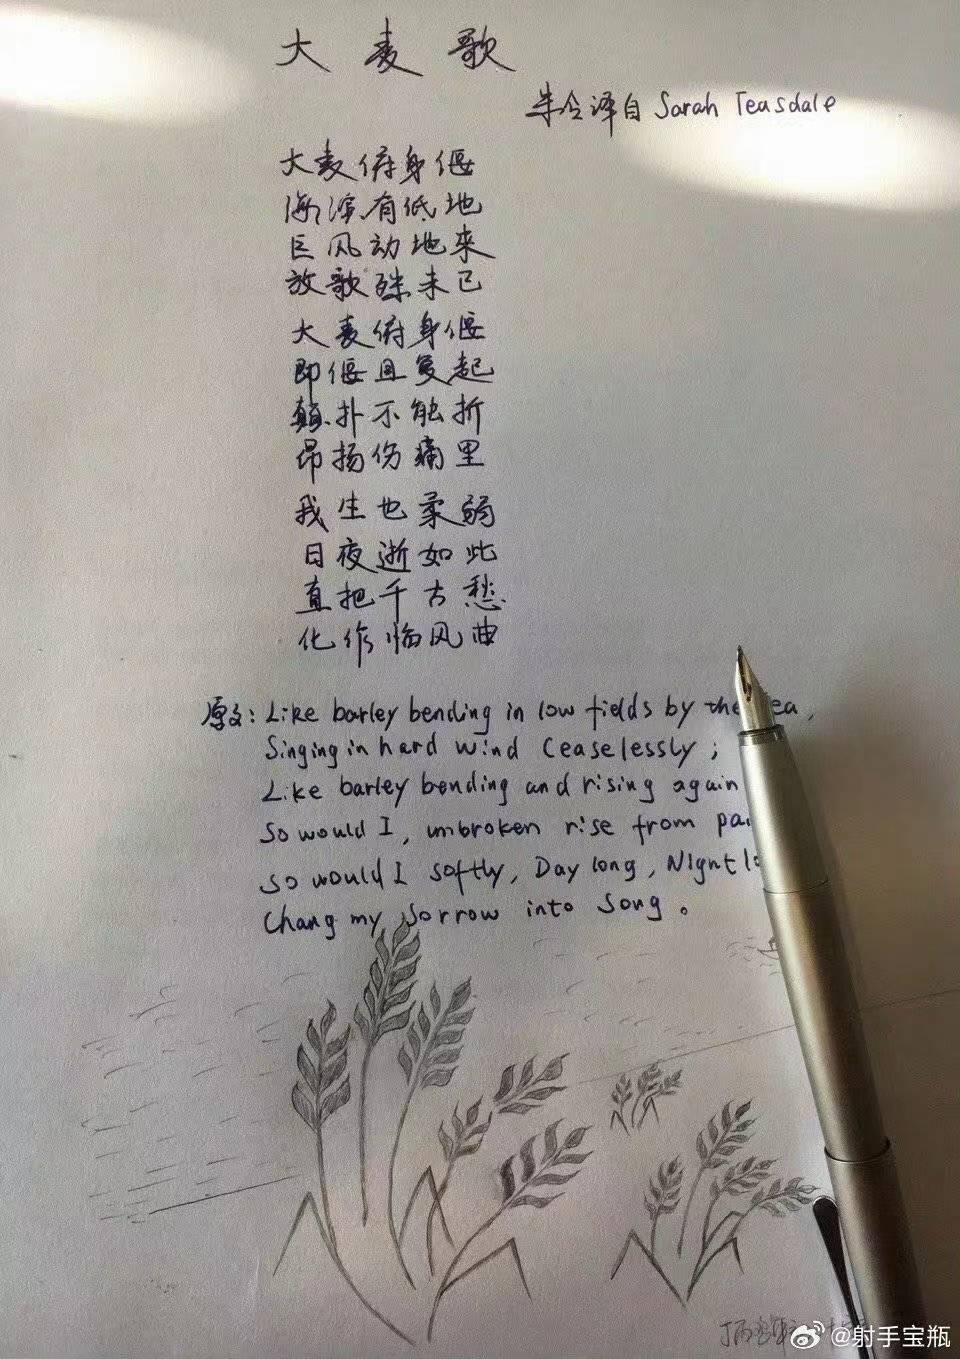 大麦歌
朱令译自 Sarah Teasdale
大麦俯身偃
海滨有低地
巨风动地来
放歌殊未已
大麦俯身偃
即偃且复起
颠扑不能折
昂扬伤痛里
我生也柔弱
日夜逝如此
直把千古愁
化作临风曲
原文: Like barley bending in low fields by the sea,
Singing in hard wind Ceaselessly;
Like barley bending and rising again
So would I, unbroken rise from
So would I softly, Day long, Night
Chang my Sorrow into Song。
@射手宝瓶